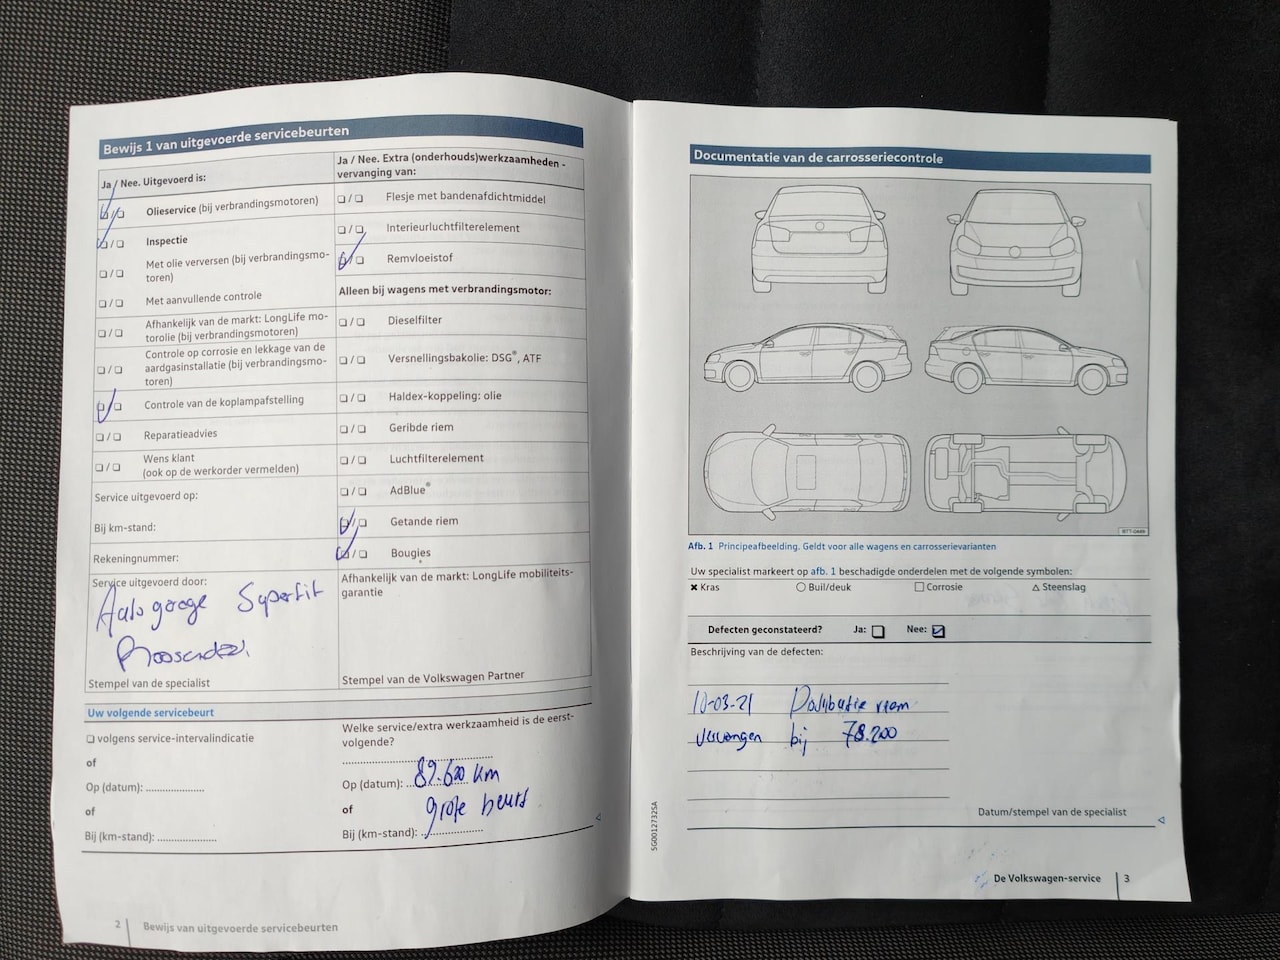 Bewijs 1 van uitgevoerde servicebeurten
Ja / Nee. Uitgevoerd is:
Olieservice (bij verbrandingsmotoren)
Inspectie
Met olie verversen (bij verbrandingsmo-
toren)
Met aanvullende controle
Afhankelijk van de markt: LongLife mo-
torolie (bij verbrandingsmotoren)
Controle op corrosie en lekkage van de
aardgasinstallatie (bij verbrandingsmo-
toren)
Controle van de koplampafstelling
Reparatieadvies
Wens klant
(ook op de werkorder vermelden)
Service uitgevoerd op:
Bij km-stand:
Rekeningnummer:
Service uitgevoerd door:
Autogarage Superfit
Roosendaal
Stempel van de specialist
Ja / Nee. Extra (onderhouds)werkzaamheden -
vervanging van:
Flesje met bandenafdichtmiddel
Interieurluchtfilterelement
Remvloeistof
Alleen bij wagens met verbrandingsmotor:
Dieselfilter
Versnellingsbakolie: DSG®, ATF
Haldex-koppeling: olie
Geribde riem
Luchtfilterelement
AdBlue®
Getande riem
Bougies
Afhankelijk van de markt: LongLife mobiliteits-
garantie
Stempel van de Volkswagen Partner
Uw volgende servicebeurt
volgens service-intervalindicatie
of
Op (datum): ....................
of
Bij (km-stand): ....................
Welke service/extra werkzaamheid is de eerst-
volgende?
Op (datum): 89.600 km
of grote beurt
Bij (km-stand): ....................
2 Bewijs van uitgevoerde servicebeurten
Documentatie van de carrosseriecontrole
BTT-0449
Afb. 1 Principeafbeelding. Geldt voor alle wagens en carrosserievarianten
Uw specialist markeert op afb. 1 beschadigde onderdelen met de volgende symbolen:
Kras Buil/deuk Corrosie Steenslag
Defecten geconstateerd? Ja: Nee:
Beschrijving van de defecten:
10-03-21 Distributie riem
vervangen bij 78.200
Datum/stempel van de specialist
SG0012732SA
De Volkswagen-service 3